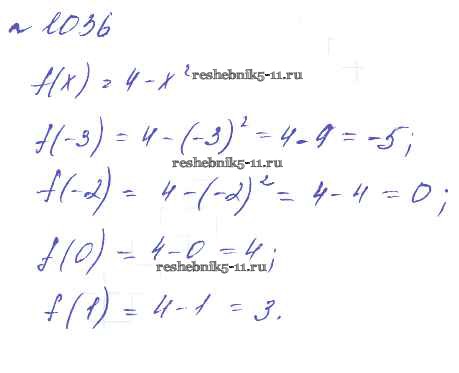 № 1036
f(x) = 4 - x² reshebnik5-11.ru
f(-3) = 4 - (-3)² = 4 - 9 = -5;
reshebnik5-11.ru
f(-2) = 4 - (-2)² = 4 - 4 = 0;
f(0) = 4 - 0 = 4;
reshebnik5-11.ru
f(1) = 4 - 1 = 3.